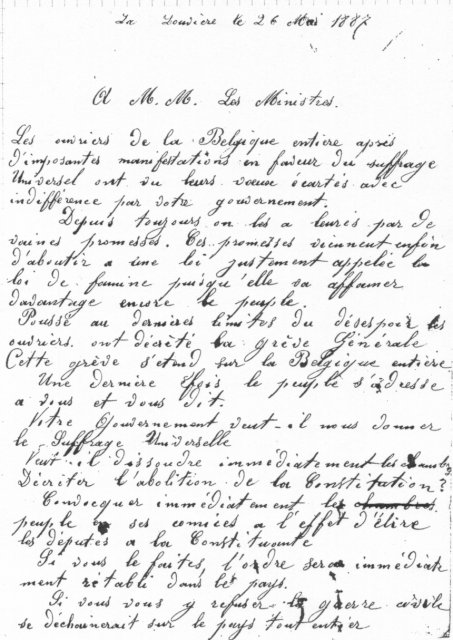 La Louvière le 26 Mai 1887
A M. M. Les Ministres.
Les ouvriers de la Belgique entière après
d'imposantes manifestations en faveur du suffrage
Universel ont vu leurs vœux écartés avec
indifférence par votre gouvernement.
Depuis toujours on les a leurrés par de
vaines promesses. Ces promesses viennent enfin
d'aboutir a une loi justement appelée la
loi de famine puisqu'elle va affamer
davantage encore le peuple.
Poussé au dernières limites du désespoir les
ouvriers ont décrété la grève Générale
Cette grève s'étend sur la Belgique entière
Une dernière fois le peuple s'adresse
a vous et vous dit.
Votre Gouvernement veut-il nous donner
le Suffrage Universelle
Veut-il dissoudre immédiatement les chambres
Décréter l'abolition de la Constitution?
Convocquer immédiatement les chambres
peuple ses comices a l'effet d'élire
les députés a la Constituante
Si vous le faites, l'ordre sera immédiate
ment rétabli dans le pays.
Si vous vous y refuser la guerre civile
se déchainerait sur le pays tout entier